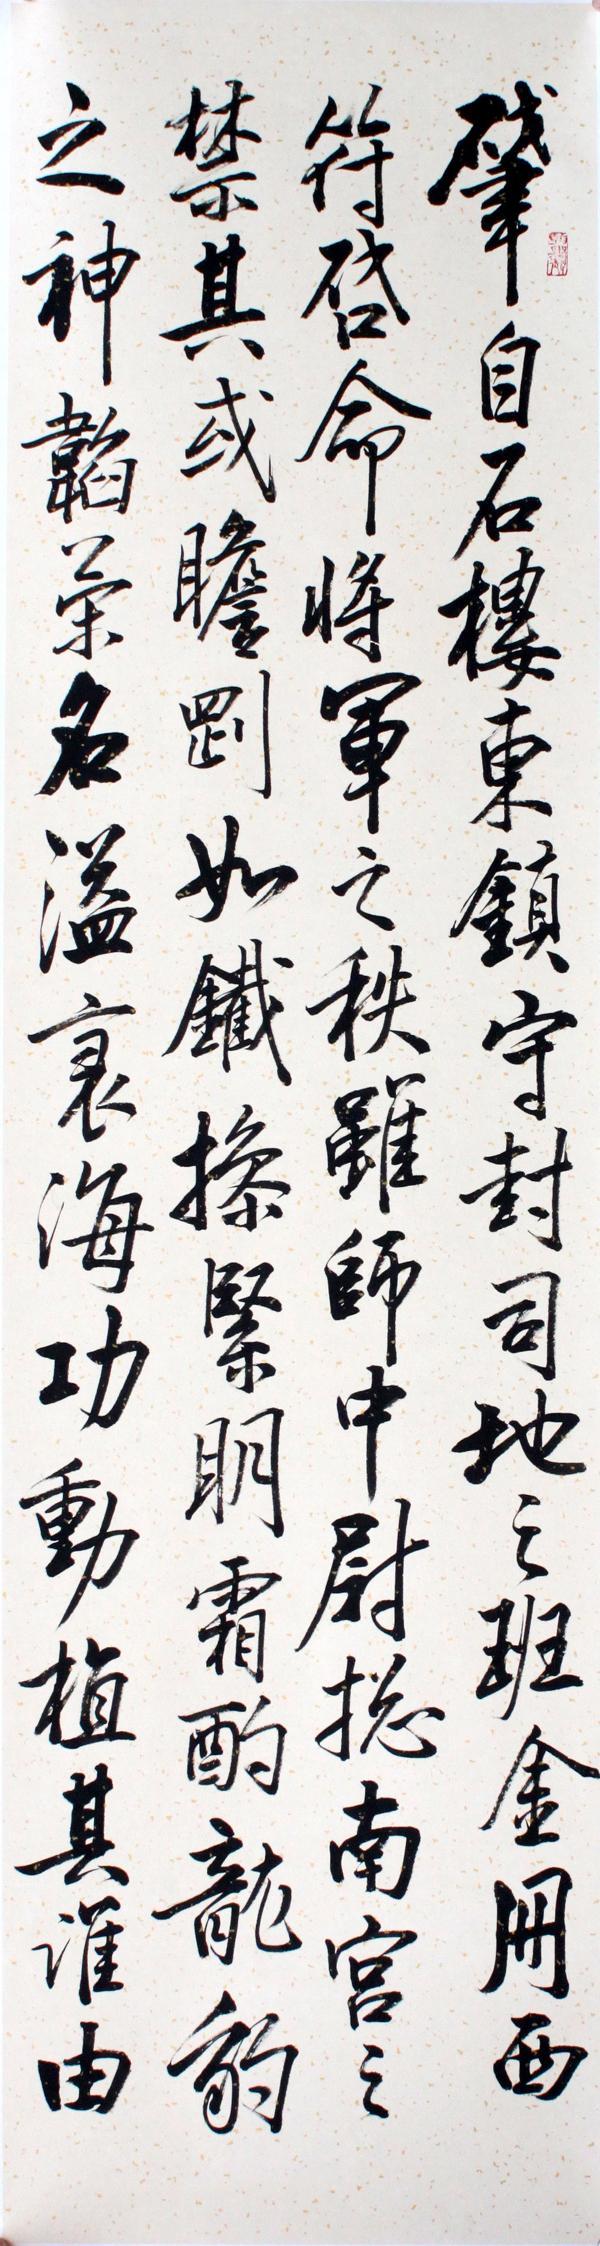 肇自石樓東鎮守封司地之班金冊西
符啓命將軍之秩雖師中尉揔南宮之
禁其或瞻㓻如鐵操緊明霜酌龍豹
之神韜榮名溢裹海功動植其誰由